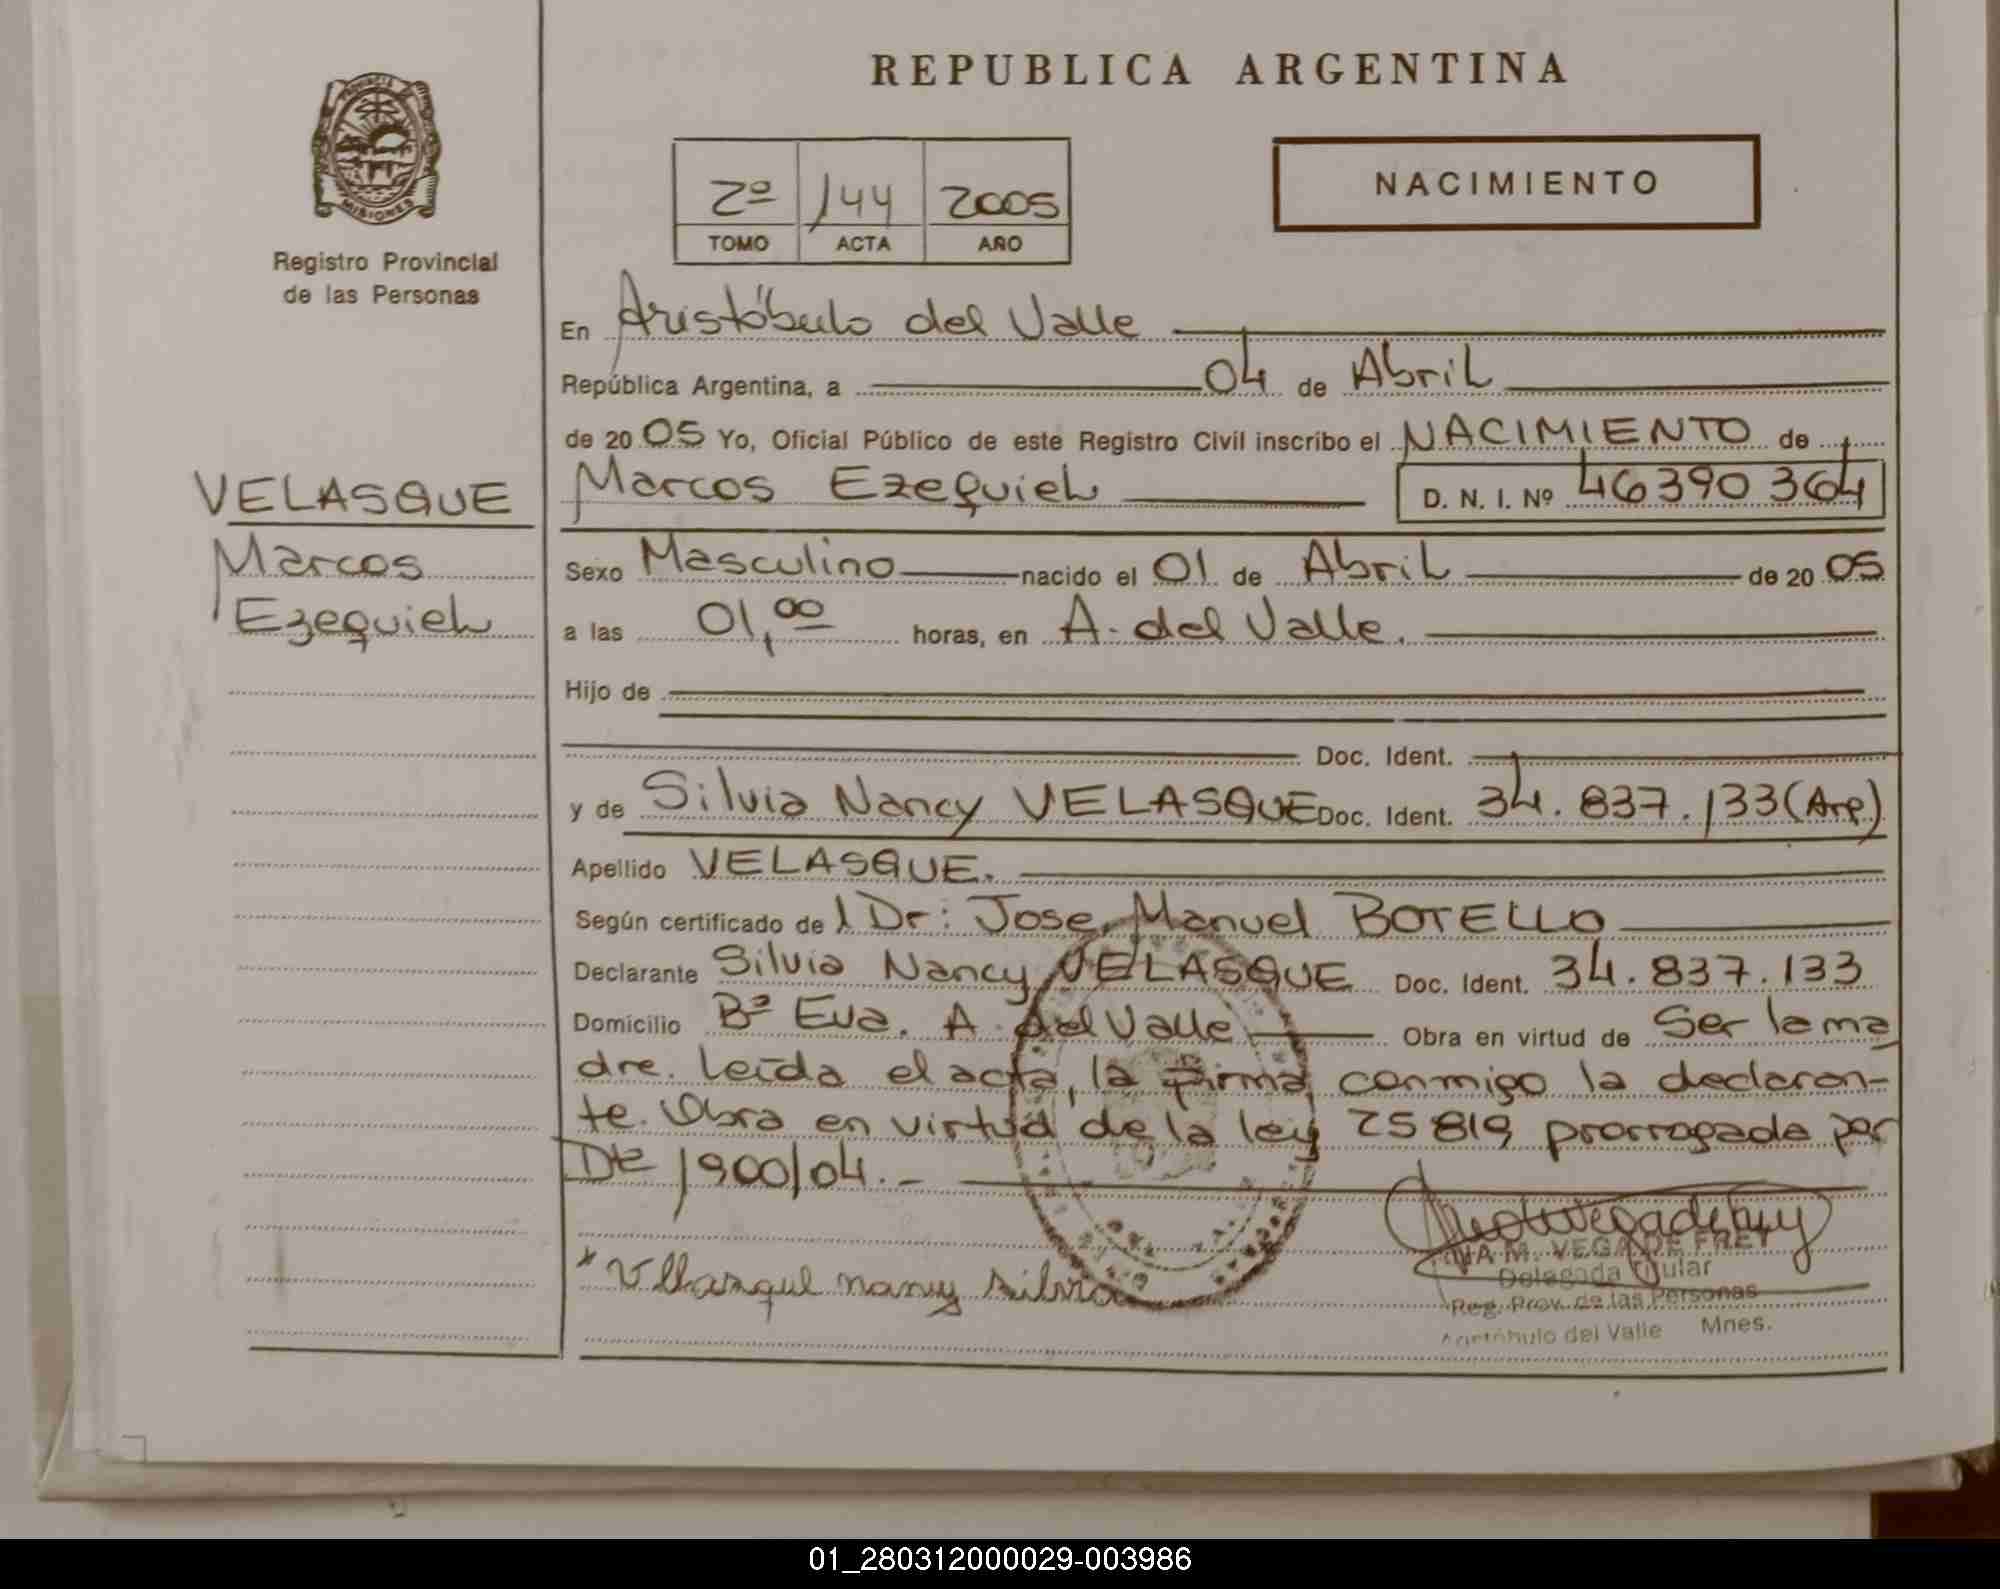 REPUBLICA ARGENTINA
PROVINCIA
MISIONES
Registro Provincial
de las Personas
2º 144 2005
TOMO ACTA AÑO
NACIMIENTO
En Aristóbulo del Valle
República Argentina, a 04 de Abril
de 2005 Yo, Oficial Público de este Registro Civil inscribo el NACIMIENTO de
VELASQUE
Marcos
Ezequiel
Marcos Ezequiel D. N. I. Nº 46390364
Sexo Masculino nacido el 01 de Abril de 2005
a las 01,00 horas, en A. del Valle.
Hijo de
Doc. Ident.
y de Silvia Nancy VELASQUE Doc. Ident. 34.837.133 (Arg)
Apellido VELASQUE.
Según certificado del Dr: Jose Manuel BOTELLO
Declarante Silvia Nancy VELASQUE Doc. Ident. 34.837.133
Domicilio Bº Eva. A. del Valle Obra en virtud de Ser la ma
dre. Leída el acta, la firma conmigo la declaran-
te. Obra en virtud de la ley 25819 prorrogada por
Dtº 1900/04.-
* Vellasquel nancy silvia
M. VEGA DE FREY
Delegada Titular
Reg. Prov. de las Personas
Aristóbulo del Valle Mnes.
01_280312000029-003986